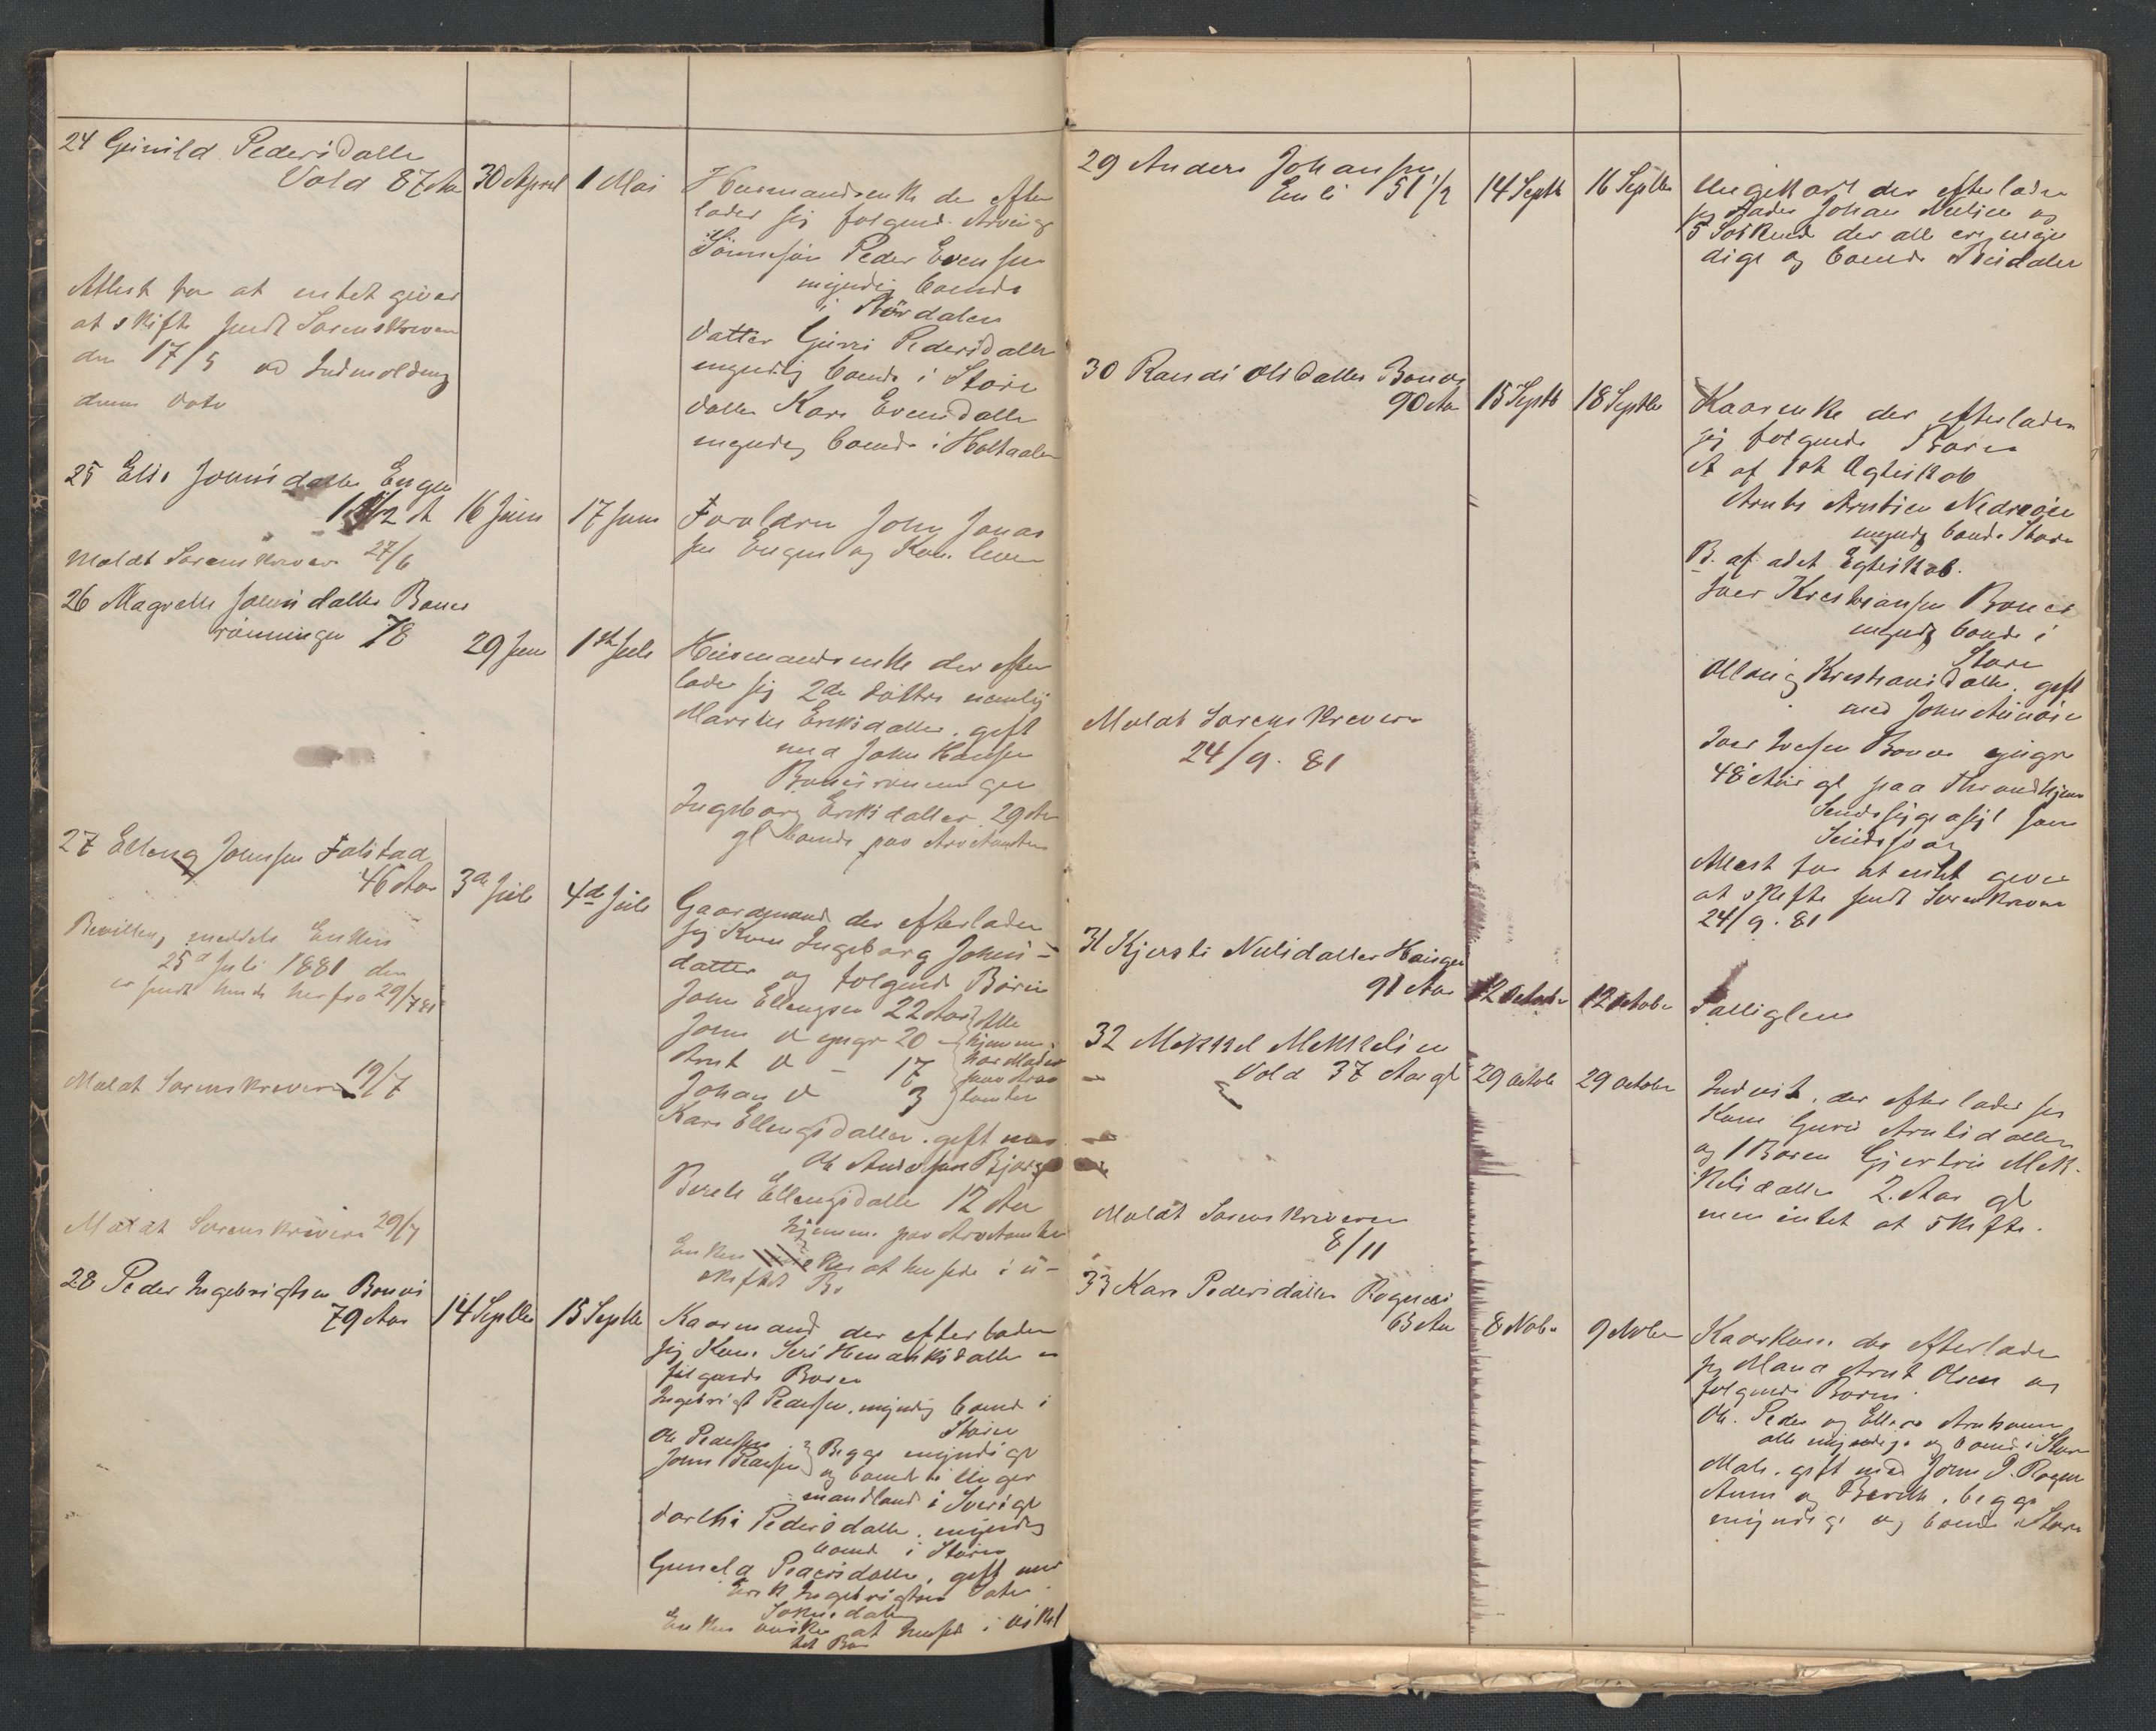 24 Gunild Pedersdatter
Vold 87 Aar
30 April
1 Mai
Husmandsenke der efter
lader sig følgende Arvinge
Sønnesøn Peder Evensen
myndig boende
i Størdalen
datter Gurri Pedersdatter
myndig boende i Støren
datter Kari Evensdatter
myndig boende i Holtaalen
Attest for at intet gives
at skifte sendt Sorenskriveren
den 17/5 ad Indmelding
denne dato
25 Elis Johnsdatter Engen
1 1/2 A
16 Juni
17 Juni
Forældre John Jonas
sen Engen og Kone
Meldt Sorenskriver 27/6
26 Magrethe Johnsdatter Bones
rønningen 78
29 Juni
1st Juli
Husmandsenke der efter
lader sig 2de døttre nemlig
Marit Eriksdatter, gift
med John Hansen
Bonesrønningen
Ingeborg Eriksdatter 29 Aar
gl boende paa Arvetomten
27 Elleng Johnsen Folstad
46 Aar
3de Juli
4de Juli
Gaardmand der efterlader
sig Kone Ingeborg Johns-
datter og følgende Børn
John Ellengsen 22 Aar
John d yngr 20 -
Arnt d - 17
Johan d 3
Alle
hjemme
hos Moder
paa Arve
tomten
Kari Ellengsdatter. gift med
Ole Andersen Bjorge
Berete Ellengsdatter 12 Aar
hjemme paa Arvetomten
Enken ønsker at hensidde i u-
skiftet Bo
Bevilling meddelt Enken
25d Juli 1881 den
er sendt hende herfra 29/7 81
Meldt Sorenskriveren 19/7
Meldt Sorenskriveren 29/7
28 Peder Ingebrigtsen Bones
79 Aar
14 Septbr
15 Septbr
Kaarmand der efterlader
sig Kone Siri Henriksdatter
følgende Børn
Ingebrigt Pedersen, myndig boend i
Støren
Ole Pedersen
John Pedersen
Begge myndige
og boende i Anger
mandland i Sverige
Dorthi Pedersdatter, myndig
boend i Støren
Gunild Pedersdatter, gift med
Erik Ingebrigtsen
Soknedalen
Enken ønsker at hensidde i uskif
tet Bo
29 Anders Johansen
Enli 51 1/2
14 Septb
16 Septbr
Ungekarl der efterlader
sig Fader Johan Nielsen og
5 Søskend der alle ere myn
dige og boende
30 Randi Olsdatter Bones
90 Aar
15 Septb
18 Septbr
Kaarenke der efterlader
sig følgende Børn
A af 1st Ægteskab
Arnt Arntsen Nedreøie
myndig boende Støren
B. af adet Egteskab.
Iver Kristiansen Bones
myndig boende i
Støren
Ollaug Kristiansdatter, gift
med John
Iver Iversen Bones yngre
48 Aar gl paa Throndhjems
Sindssygeasyl som
Sindssvag
Attest for at intet gives
at skifte sendt Sorenskriveren
24/9. 81
Meldt Sorenskriveren
24/9. 81
31 Kjersti Nilsdatter Haugen
91 Aar
12 October
12 October
Fattiglem
32 Mekkel Mekkelsen
Vold 37 Aar gl
29 Octob
29 October
Inderst. der efterlader sig
Kone Guru Arntsdatter
og 1 Barn Gjertru Mek-
kelsdatter 2. Aar gl
men intet at skifte.
Meldt Sorenskriveren
8/11
33 Kari Pedersdatter Rognes
65 Aar
8 Nobr
9 Nobr
Kaarkone. der efterlader
sig Mand Arnt Olsen og
følgende Børn
Ole. Peder og Ellen Arntsen
alle myndige og boend i Støren
Mali. gift med John P. Rognes
Anne og Bereth. begge
myndige og boend i Støren